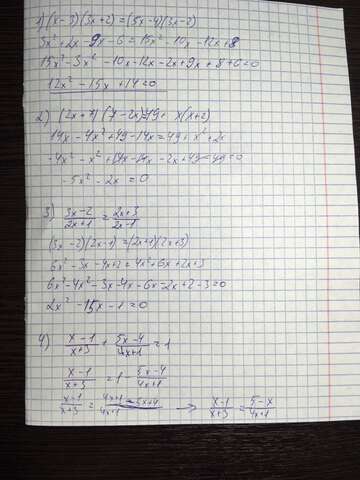 1) (x-3)(3x+2)=(5x-4)(3x-2)
3x²+2x-9x-6=15x²-10x-12x+8
15x²-3x²-10x-12x-2x+9x+8+6=0
12x²-15x+14=0
2) (2x+7)(7-2x)=49+x(x+2)
14x-4x²+49-14x=49+x²+2x
-4x²-x²+14x-14x-2x+49-49=0
-5x²-2x=0
3) (3x-2)/(2x+1)=(2x+3)/(2x-1)
(3x-2)(2x-1)=(2x+1)(2x+3)
6x²-3x-4x+2=4x²+6x+2x+3
6x²-4x²-3x-4x-6x-2x+2-3=0
2x²-15x-1=0
4) (x-1)/(x+3)+(5x-4)/(4x+1)=1
(x-1)/(x+3)=1-(5x-4)/(4x+1)
(x-1)/(x+3)=(4x+1-5x+4)/(4x+1) → (x-1)/(x+3)=(5-x)/(4x+1)